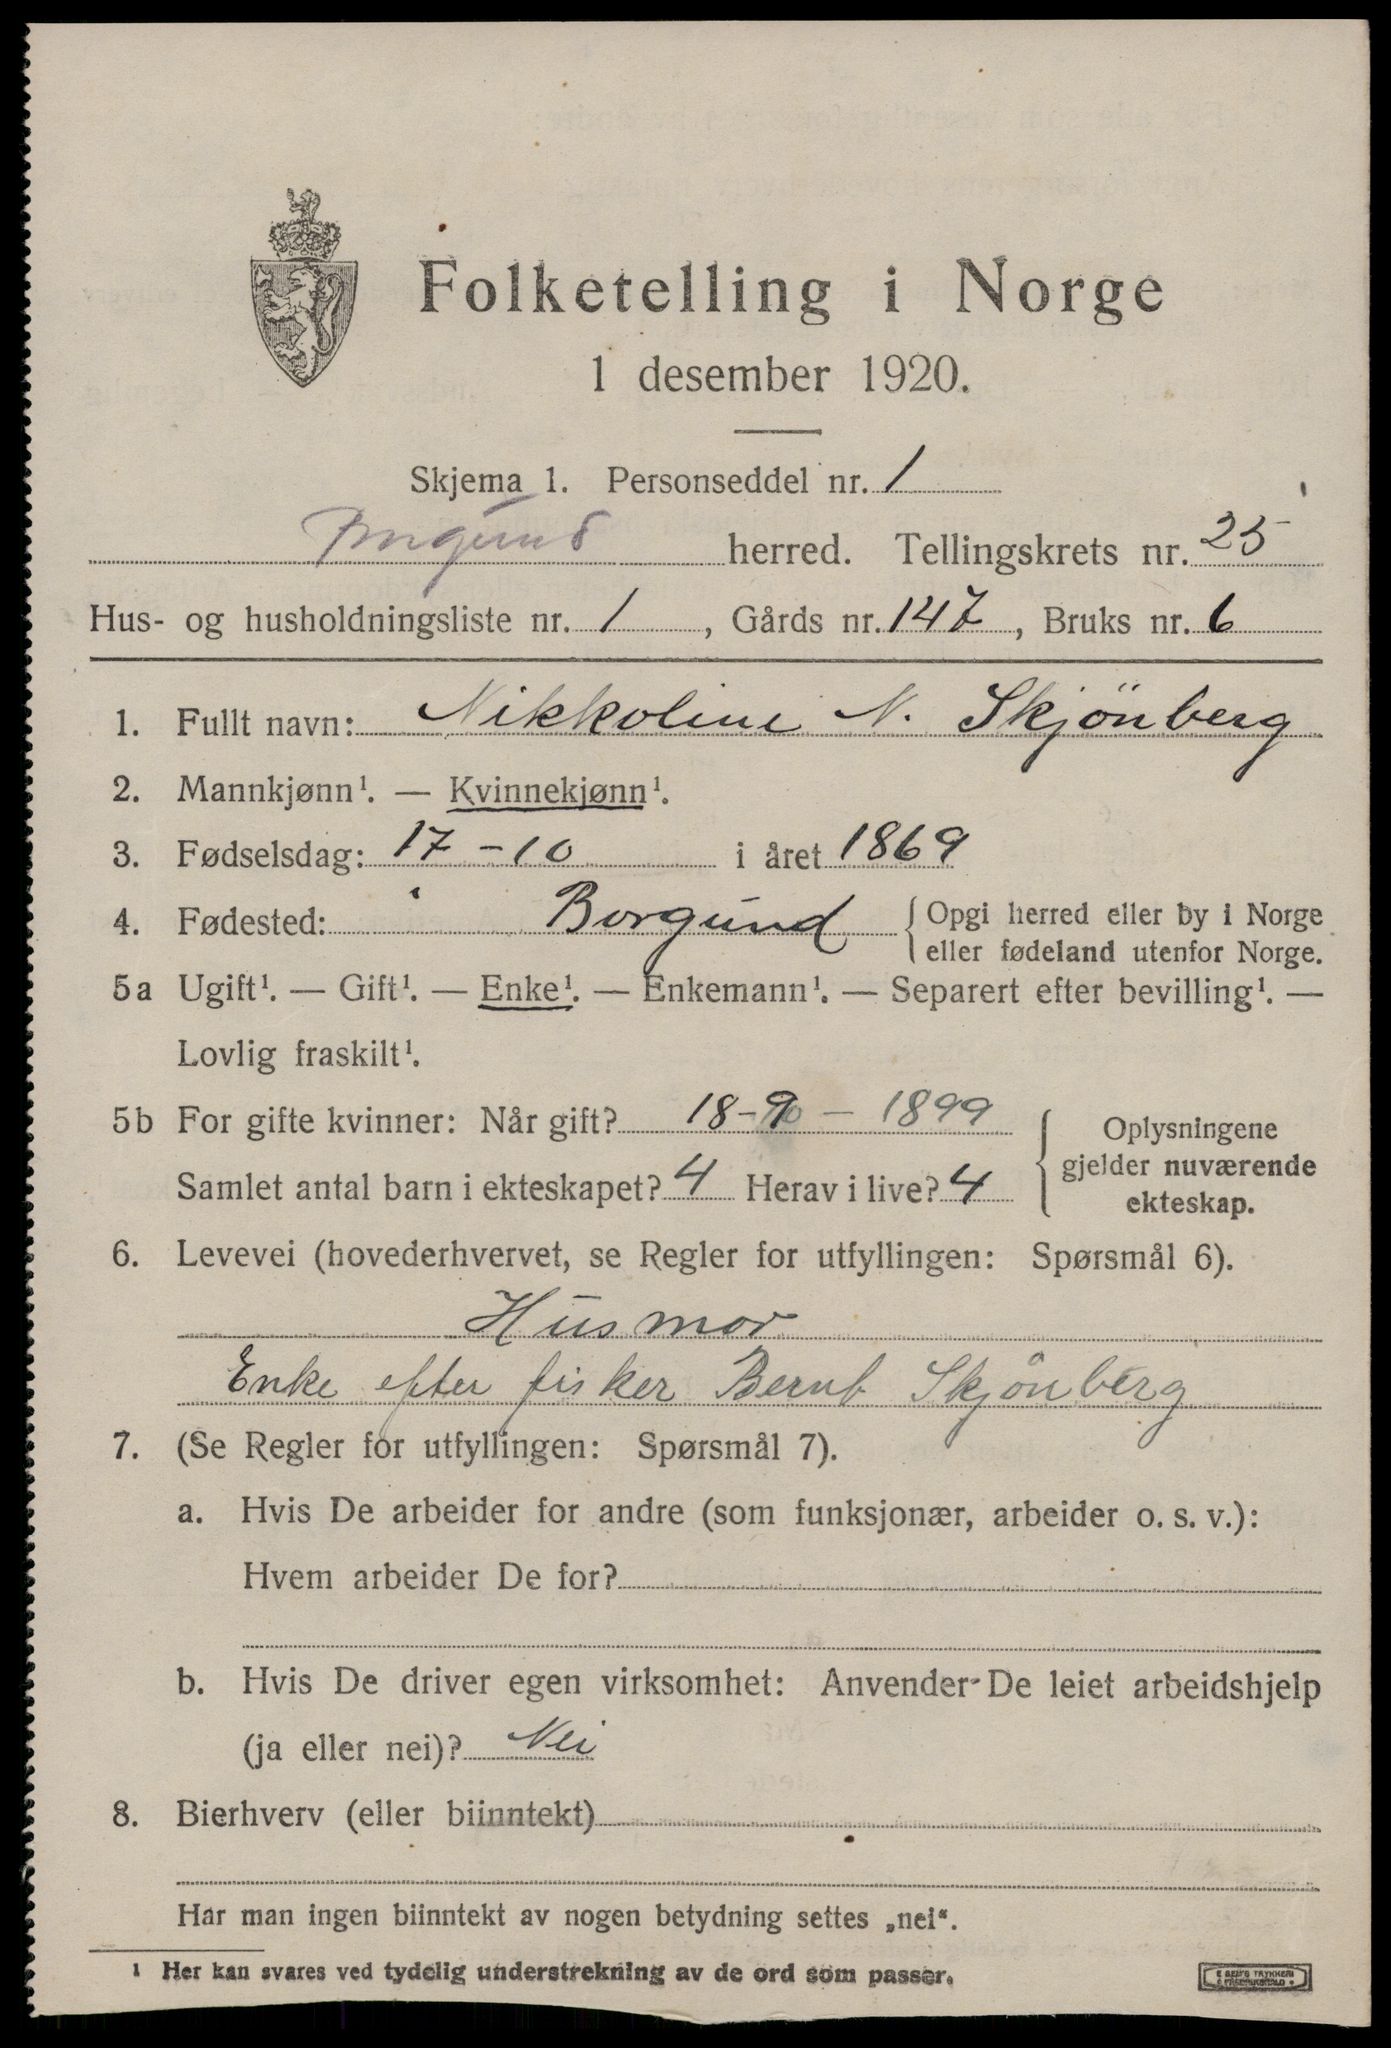 Folketelling i Norge
1 desember 1920.
Skjema 1. Personseddel nr. 1
Borgund herred. Tellingskrets nr. 25
Hus- og husholdningsliste nr. 1, Gårds nr. 147, Bruks nr. 6
1. Fullt navn: Nikkoline N. Skjönberg
2. Mannkjønn¹. — Kvinnekjønn¹.
3. Fødselsdag: 17-10 i året 1869
4. Fødested: Borgund { Opgi herred eller by i Norge
eller fødeland utenfor Norge.
5a Ugift¹. — Gift¹. — Enke¹. — Enkemann¹. — Separert efter bevilling¹. —
Lovlig fraskilt¹.
5b For gifte kvinner: Når gift? 18- - 1899
Samlet antal barn i ekteskapet? 4 Herav i live? 4
{ Oplysningene
gjelder nuværende
ekteskap.
6. Levevei (hovederhvervet, se Regler for utfyllingen: Spørsmål 6).
Husmor
Enke efter fisker Bernt Skjönberg
7. (Se Regler for utfyllingen: Spørsmål 7).
a. Hvis De arbeider for andre (som funksjonær, arbeider o. s. v.):
Hvem arbeider De for?
b. Hvis De driver egen virksomhet: Anvender De leiet arbeidshjelp
(ja eller nei)? Nei
8. Bierhverv (eller biinntekt)
Har man ingen biinntekt av nogen betydning settes „nei“.
¹ Her kan svares ved tydelig understrekning av de ord som passer.